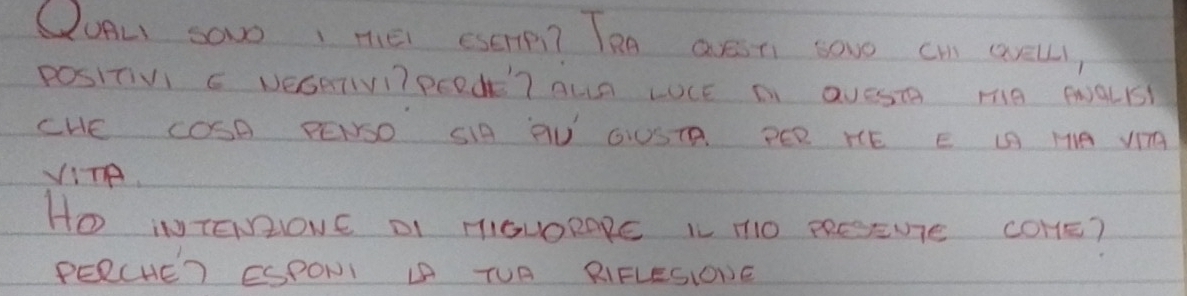 QUALI SONO I MIEI ESEMPI? TRA QUESTI SONO CHI QUELLI,
POSITIVI E NEGATIVI? PERCHE'? ALLA LUCE DI QUESTA MIA ANALISI
CHE COSA PENSO SIA PIU' GIUSTA PER ME E LA MIA VITA
VITA.
HO INTENZIONE DI MIGLIORARE IL MIO PRESENTE COME?
PERCHE'? ESPONI LA TUA RIFLESIONE